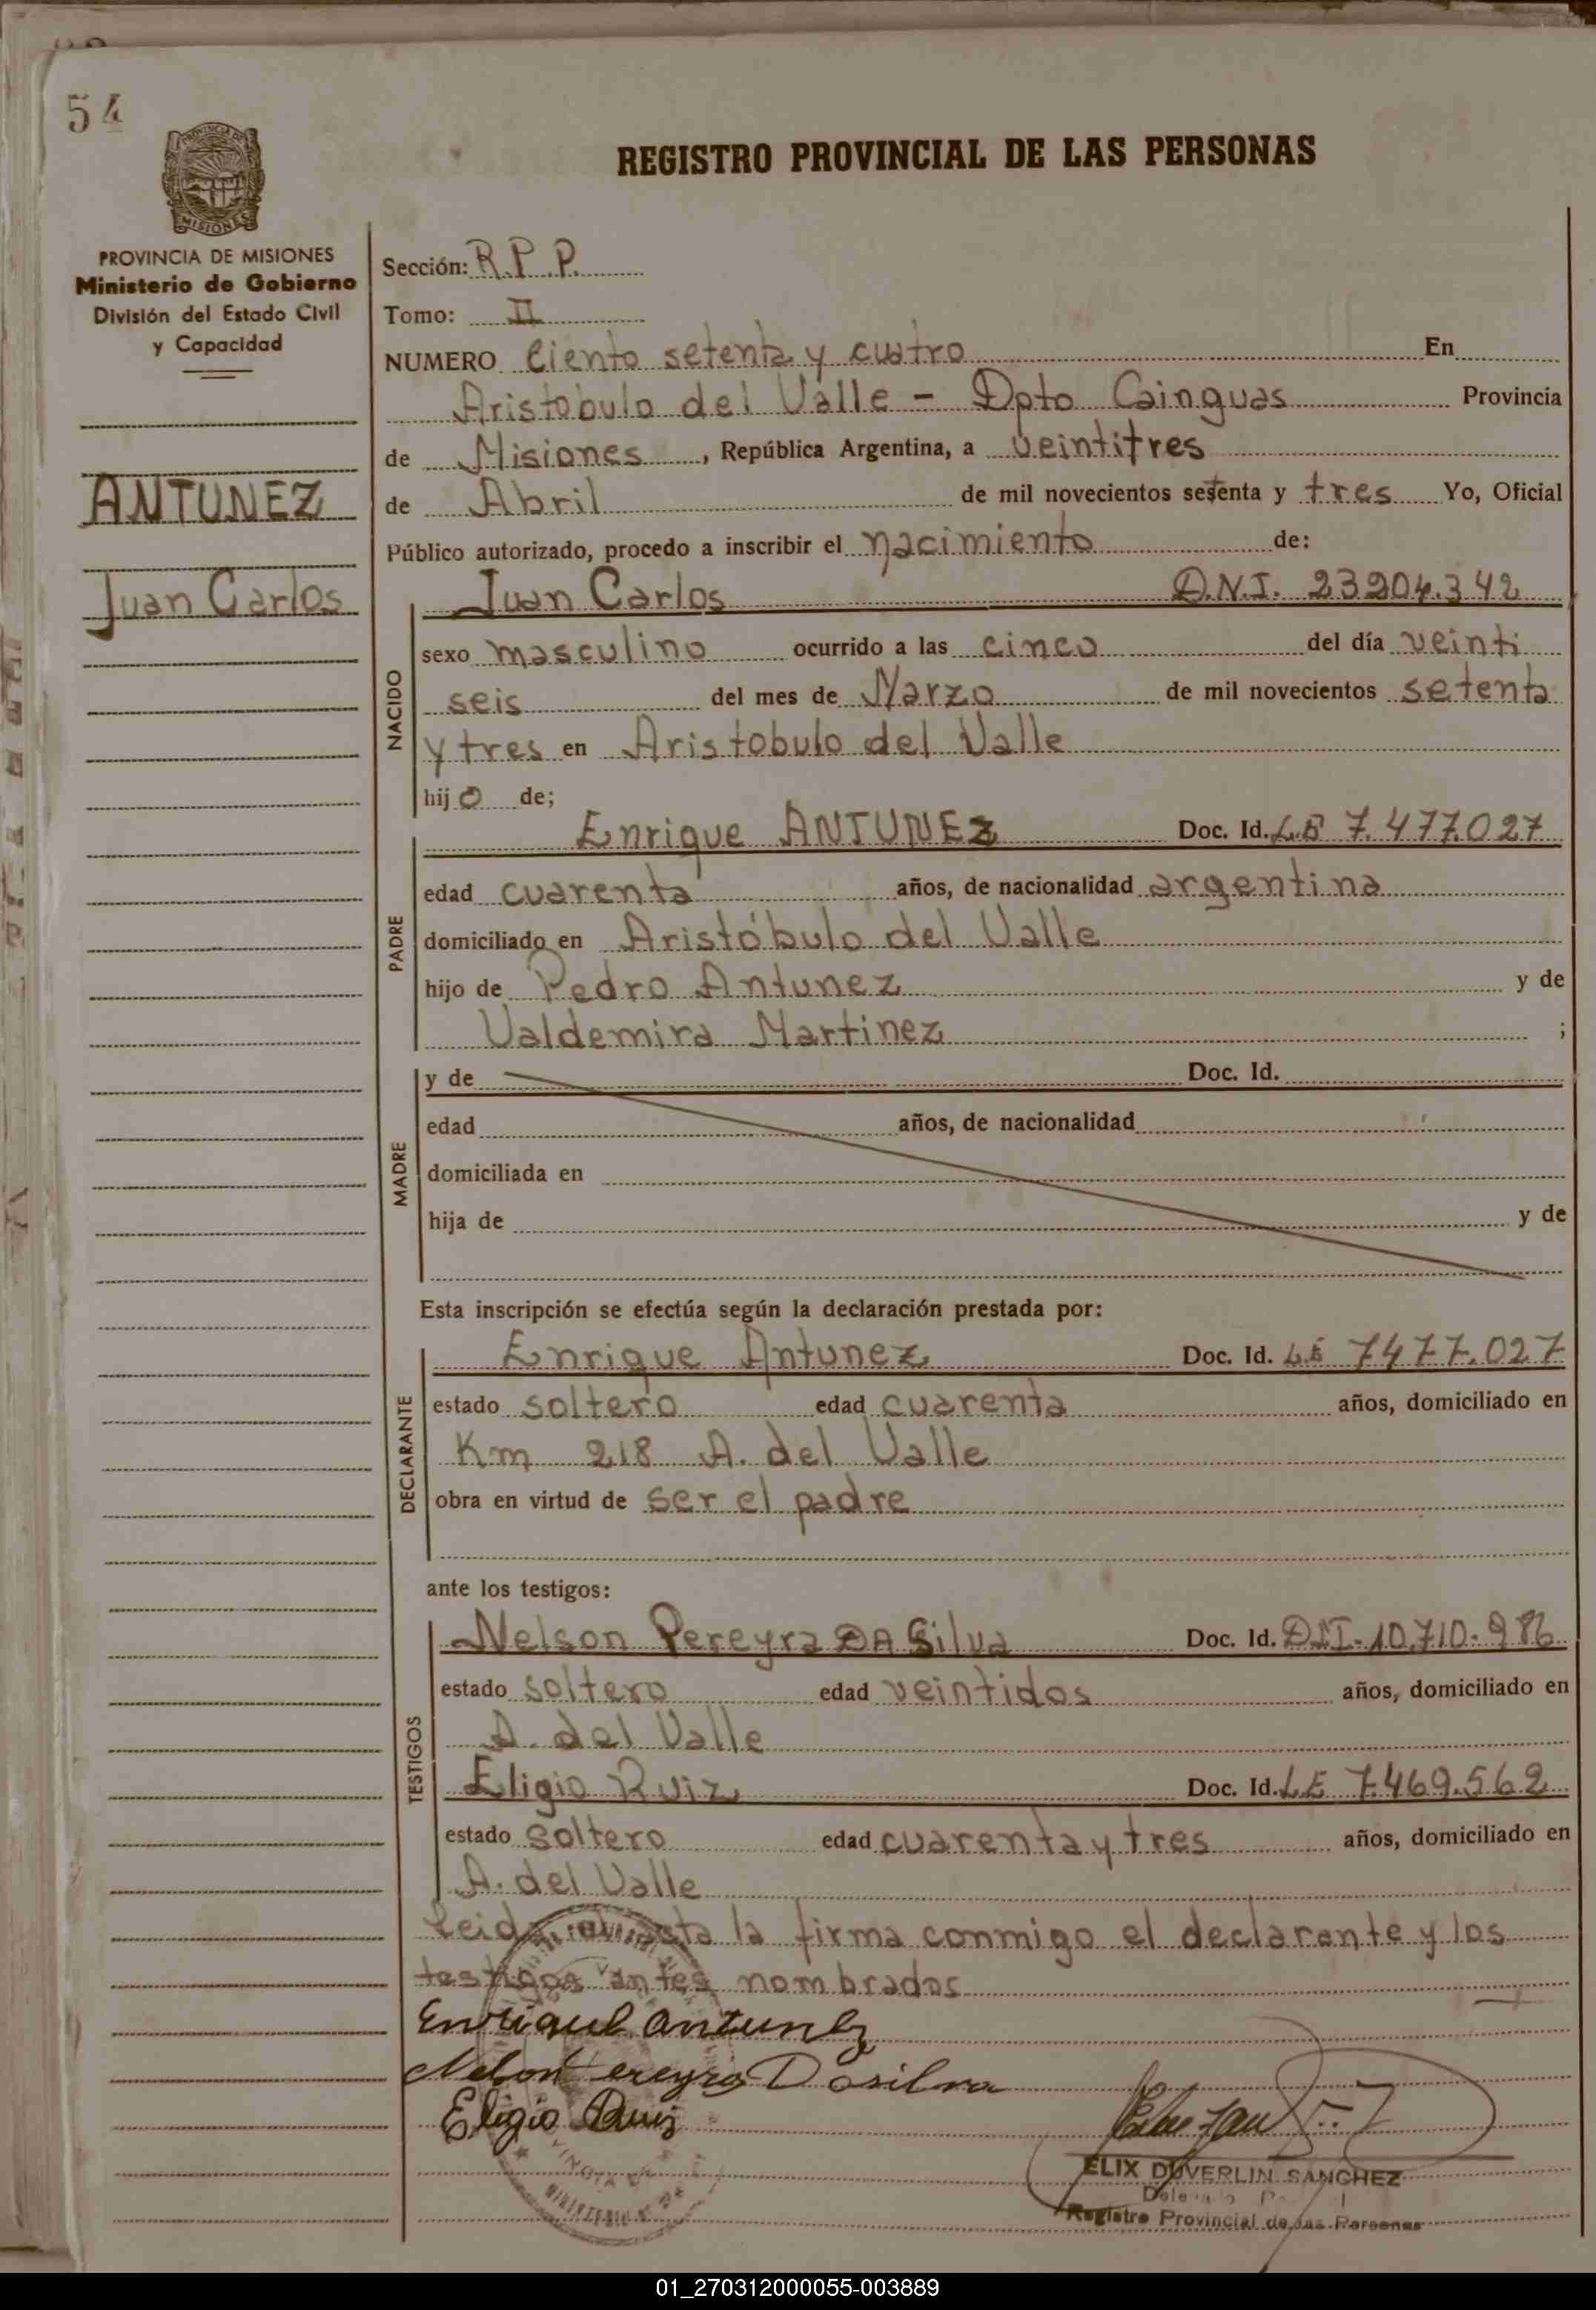 54
REGISTRO PROVINCIAL DE LAS PERSONAS
PROVINCIA DE MISIONES
Ministerio de Gobierno
División del Estado Civil
y Capacidad
ANTUNEZ
Juan Carlos
Sección: R.P.P.
Tomo: II
NUMERO Ciento setenta y cuatro En
Aristobulo del Valle - Dpto Cainguas Provincia
de Misiones, República Argentina, a veintitres
de Abril de mil novecientos setenta y tres Yo, Oficial
Público autorizado, procedo a inscribir el nacimiento de:
Juan Carlos D.N.I. 23204.342
NACIDO
sexo masculino ocurrido a las cinco del día veinti
seis del mes de Marzo de mil novecientos setenta
y tres en Aristobulo del Valle
hijo de;
PADRE
Enrique ANTUNEZ Doc. Id. LE 7.477.027
edad cuarenta años, de nacionalidad argentina
domiciliado en Aristóbulo del Valle
hijo de Pedro Antunez y de
Valdemira Martinez ;
MADRE
y de Doc. Id.
edad años, de nacionalidad
domiciliada en
hija de y de
Esta inscripción se efectúa según la declaración prestada por:
DECLARANTE
Enrique Antunez Doc. Id. LE 7477.027
estado soltero edad cuarenta años, domiciliado en
Km 218 A. del Valle
obra en virtud de ser el padre
ante los testigos:
TESTIGOS
Nelson Pereyra DA Silva Doc. Id. DNI-10.710.986
estado soltero edad veintidos años, domiciliado en
A. del Valle
Eligio Ruiz Doc. Id. LE 7.469.562
estado soltero edad cuarenta y tres años, domiciliado en
A. del Valle
Leida el acta la firma conmigo el declarante y los
testigos antes nombrados
Enrique Antunez
Nelson Pereyra Dasilva
Eligio Ruiz
ELIX DUVERLIN SANCHEZ
Registro Provincial de las Personas
01_270312000055-003889